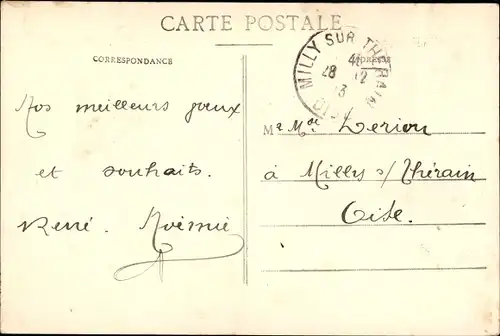 CARTE POSTALE
CORRESPONDANCE
MILLY SUR THERAIN
28 12
13
OISE
Nos meilleurs vœux
et souhaits.
René. Noémie
Mr Mme Derion
à Milly s/ Thérain
Oise.